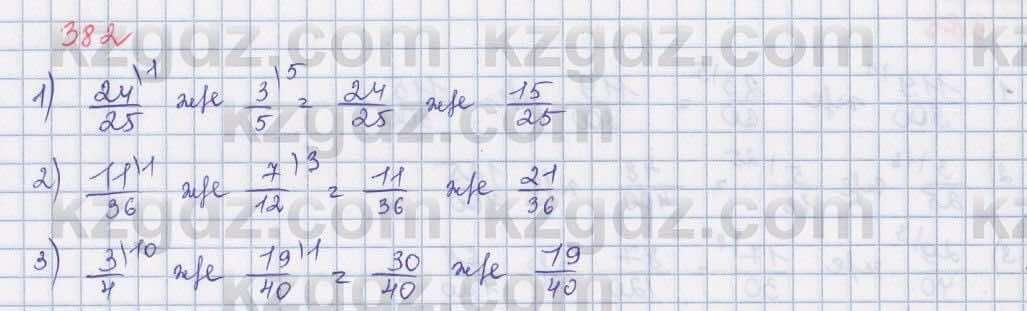 382
kzgdz.com kzgdz.com
1) 24/25 \1 және 3/5 \5 = 24/25 және 15/25
kzgdz.com kzgdz.com
2) 11/36 \1 және 7/12 \3 = 11/36 және 21/36
kzgdz.com kzgdz.com
3) 3/4 \10 және 19/40 \1 = 30/40 және 19/40
kzgdz.com kzgdz.com